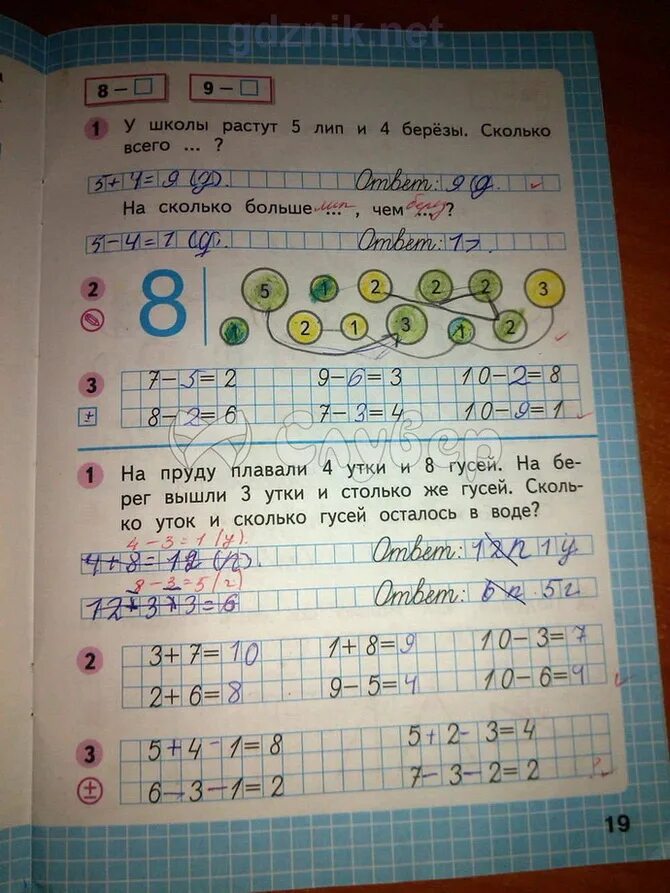 gdznik.net
8 – □ 9 – □
1 У школы растут 5 лип и 4 берёзы. Сколько
всего ... ?
5+4=9 (д). Ответ: 9 (д.
На сколько больше лип ..., чем берёз ...?
5–4=1 (д). Ответ: 1
2 8 5 1 2 2 2 3
1 2 1 3 1 2
3 7–5=2 9–6=3 10–2=8
± 8–2=6 7–3=4 10–9=1
Слувер
1 На пруду плавали 4 утки и 8 гусей. На бе-
рег вышли 3 утки и столько же гусей. Сколь-
ко уток и сколько гусей осталось в воде?
4–3=1 (у).
4+8=12 (п). Ответ: 12п 1у
8–3=5 (г)
12+3+3=6 Ответ: 6п. 5г
2 3+7=10 1+8=9 10–3=7
2+6=8 9–5=4 10–6=4
3 5+4–1=8 5+2–3=4
± 6–3–1=2 7–3–2=2
19